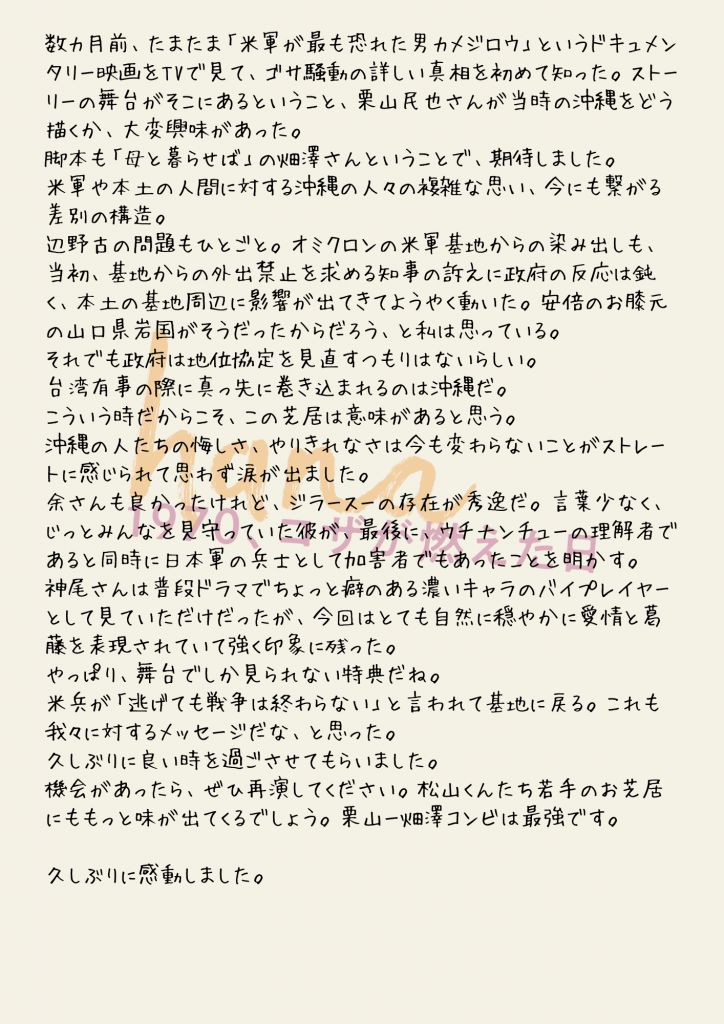 数カ月前、たまたま「米軍が最も恐れた男カメジロウ」というドキュメン
タリー映画をTVで見て、ゴザ騒動の詳しい真相を初めて知った。ストー
リーの舞台がそこにあるということ、栗山民也さんが当時の沖縄をどう
描くか、大変興味があった。
脚本も「母と暮らせば」の畑澤さんということで、期待しました。
米軍や本土の人間に対する沖縄の人々の複雑な思い、今にも繋がる
差別の構造。
辺野古の問題もひとごと。オミクロンの米軍基地からの染み出しも、
当初、基地からの外出禁止を求める知事の訴えに政府の反応は鈍
く、本土の基地周辺に影響が出てきてようやく動いた。安倍のお膝元
の山口県岩国がそうだったからだろう、と私は思っている。
それでも政府は地位協定を見直すつもりはないらしい。
台湾有事の際に真っ先に巻き込まれるのは沖縄だ。
こういう時だからこそ、この芝居は意味があると思う。
沖縄の人たちの悔しさ、やりきれなさは今も変わらないことがストレー
トに感じられて思わず涙が出ました。
余さんも良かったけれど、ジラースーの存在が秀逸だ。言葉少なく、
じっとみんなを見守っていた彼が、最後に、ウチナンチューの理解者で
あると同時に日本軍の兵士として加害者でもあったことを明かす。
神尾さんは普段ドラマでちょっと癖のある濃いキャラのバイプレイヤー
として見ていただけだったが、今回はとても自然に穏やかに愛情と葛
藤を表現されていて強く印象に残った。
やっぱり、舞台でしか見られない特典だね。
米兵が「逃げても戦争は終わらない」と言われて基地に戻る。これも
我々に対するメッセージだな、と思った。
久しぶりに良い時を過ごさせてもらいました。
機会があったら、ぜひ再演してください。松山くんたち若手のお芝居
にももっと味が出てくるでしょう。栗山ー畑澤コンビは最強です。
久しぶりに感動しました。
hana
1970、コザが燃えた日